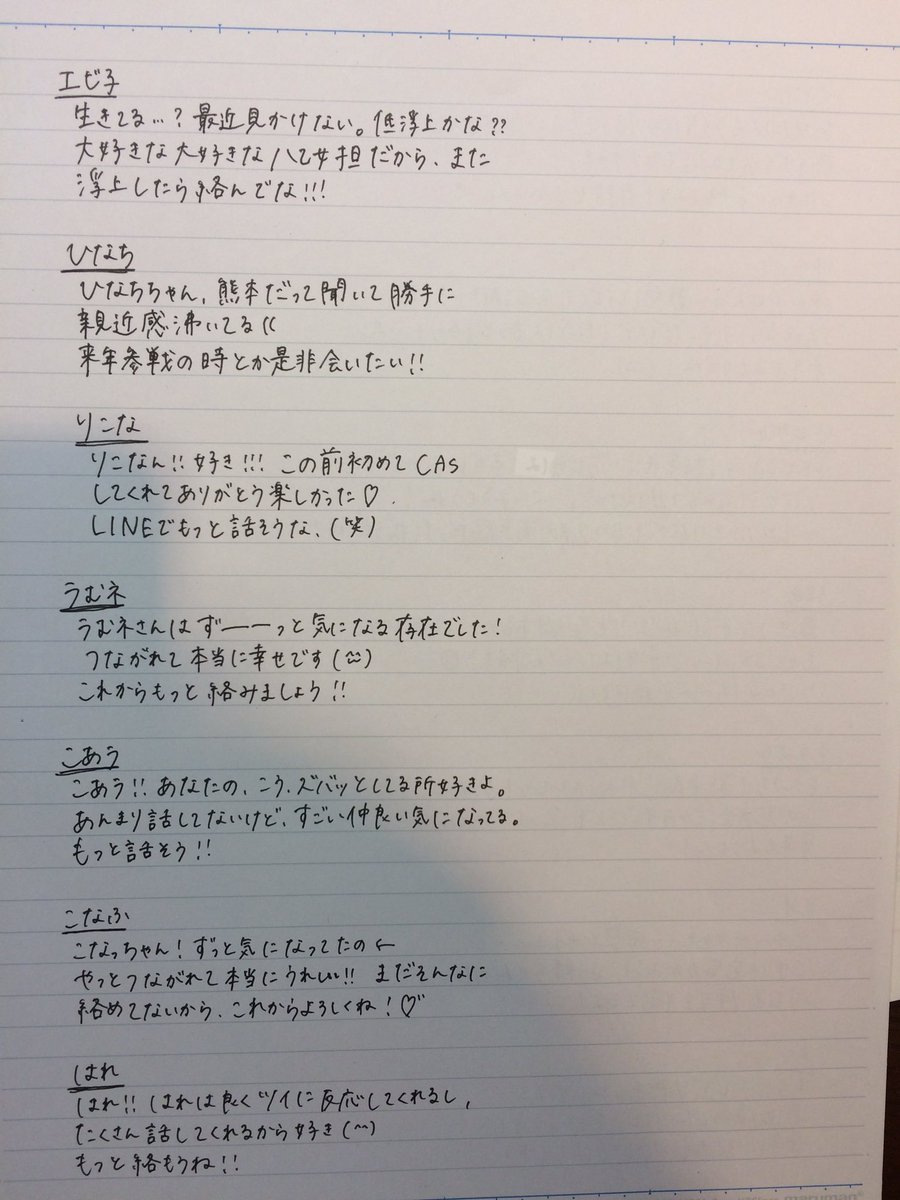 エビ子
生きてる…？最近見かけない。低浮上かな??
大好きな大好きな八乙女担だから、また
浮上したら絡んでな!!!
ひなち
ひなちちゃん、熊本だって聞いて勝手に
親近感沸いてる((
来年参戦の時とか是非会いたい!!
りこな
りこなん!!好き!!! この前初めてCAS
してくれてありがとう楽しかった♡.
LINEでもっと話そうな、(笑)
うむネ
うむネさんはずーーっと気になる存在でした!
つながれて本当に幸せです(^^)
これからもっと絡みましょう!!
こあう
こあう!!あなたの、こう、ズバッとしてる所好きよ。
あんまり話してないけど、すごい仲良い気になってる。
もっと話そう!!
こなふ
こなっちゃん!ずっと気になってたの←
やっとつながれて本当にうれしい!! まだそんなに
絡めてないから、これからよろしくね!♡
はれ
はれ!!はれは良くツイに反応してくれるし,
たくさん話してくれるから好き(^^)
もっと絡もうね!!